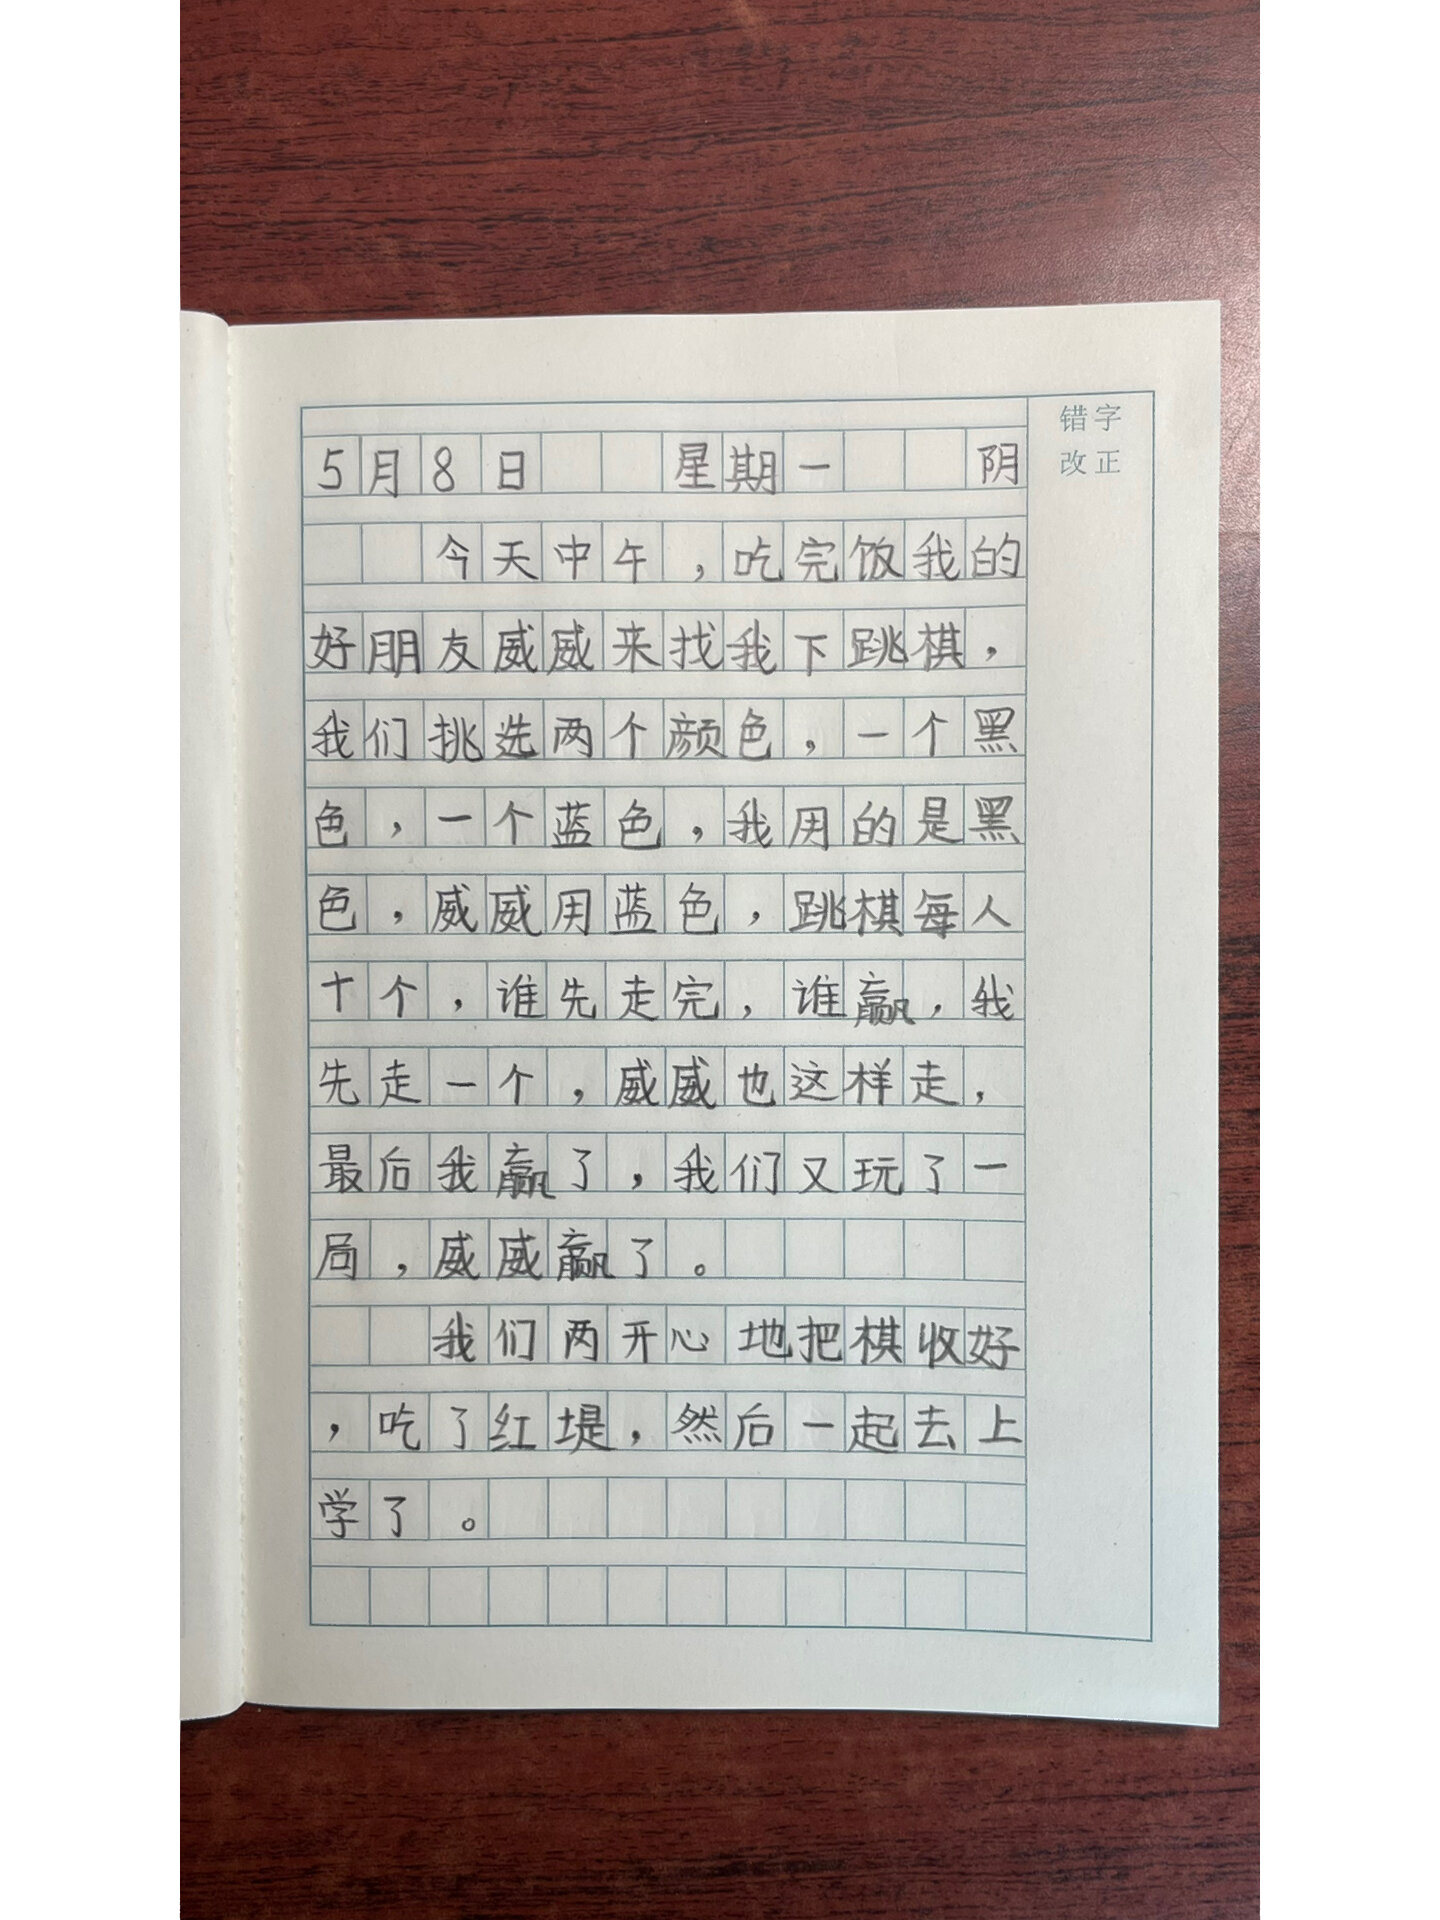 错字
改正
5月8日 星期一 阴
今天中午,吃完饭我的
好朋友威威来找我下跳棋,
我们挑选两个颜色,一个黑
色,一个蓝色,我用的是黑
色,威威用蓝色,跳棋每人
十个,谁先走完,谁赢,我
先走一个,威威也这样走,
最后我赢了,我们又玩了一
局,威威赢了。
我们两开心地把棋收好
,吃了红堤,然后一起去上
学了。